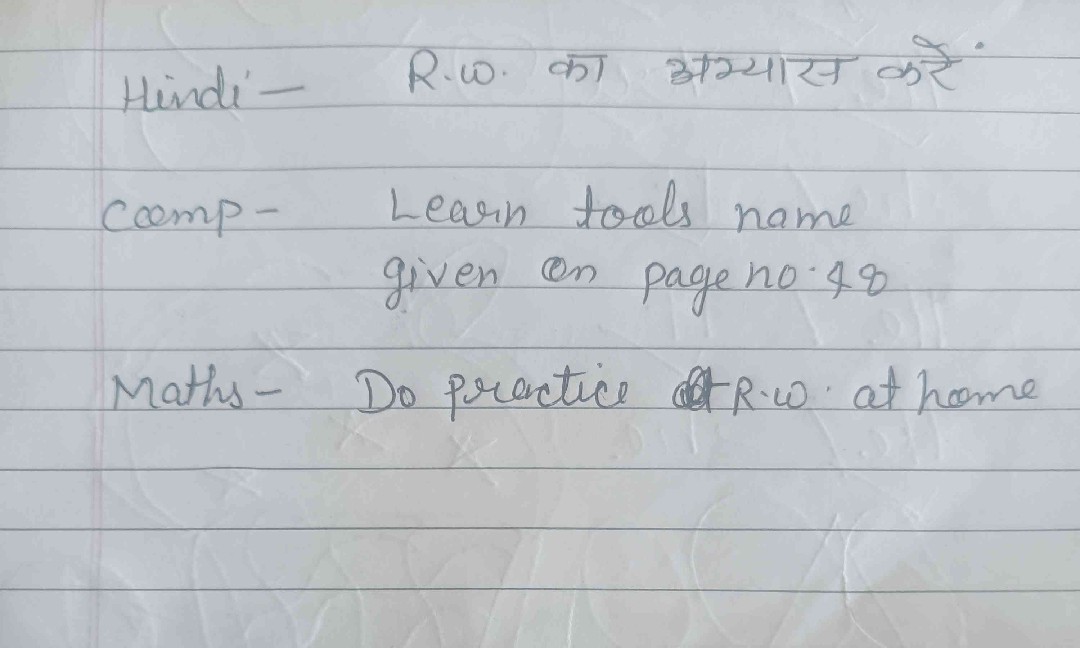 Hindi - R.w. का अभ्यास करें
Comp - Learn tools name
given on page no. 48
Maths - Do practice R.w. at home